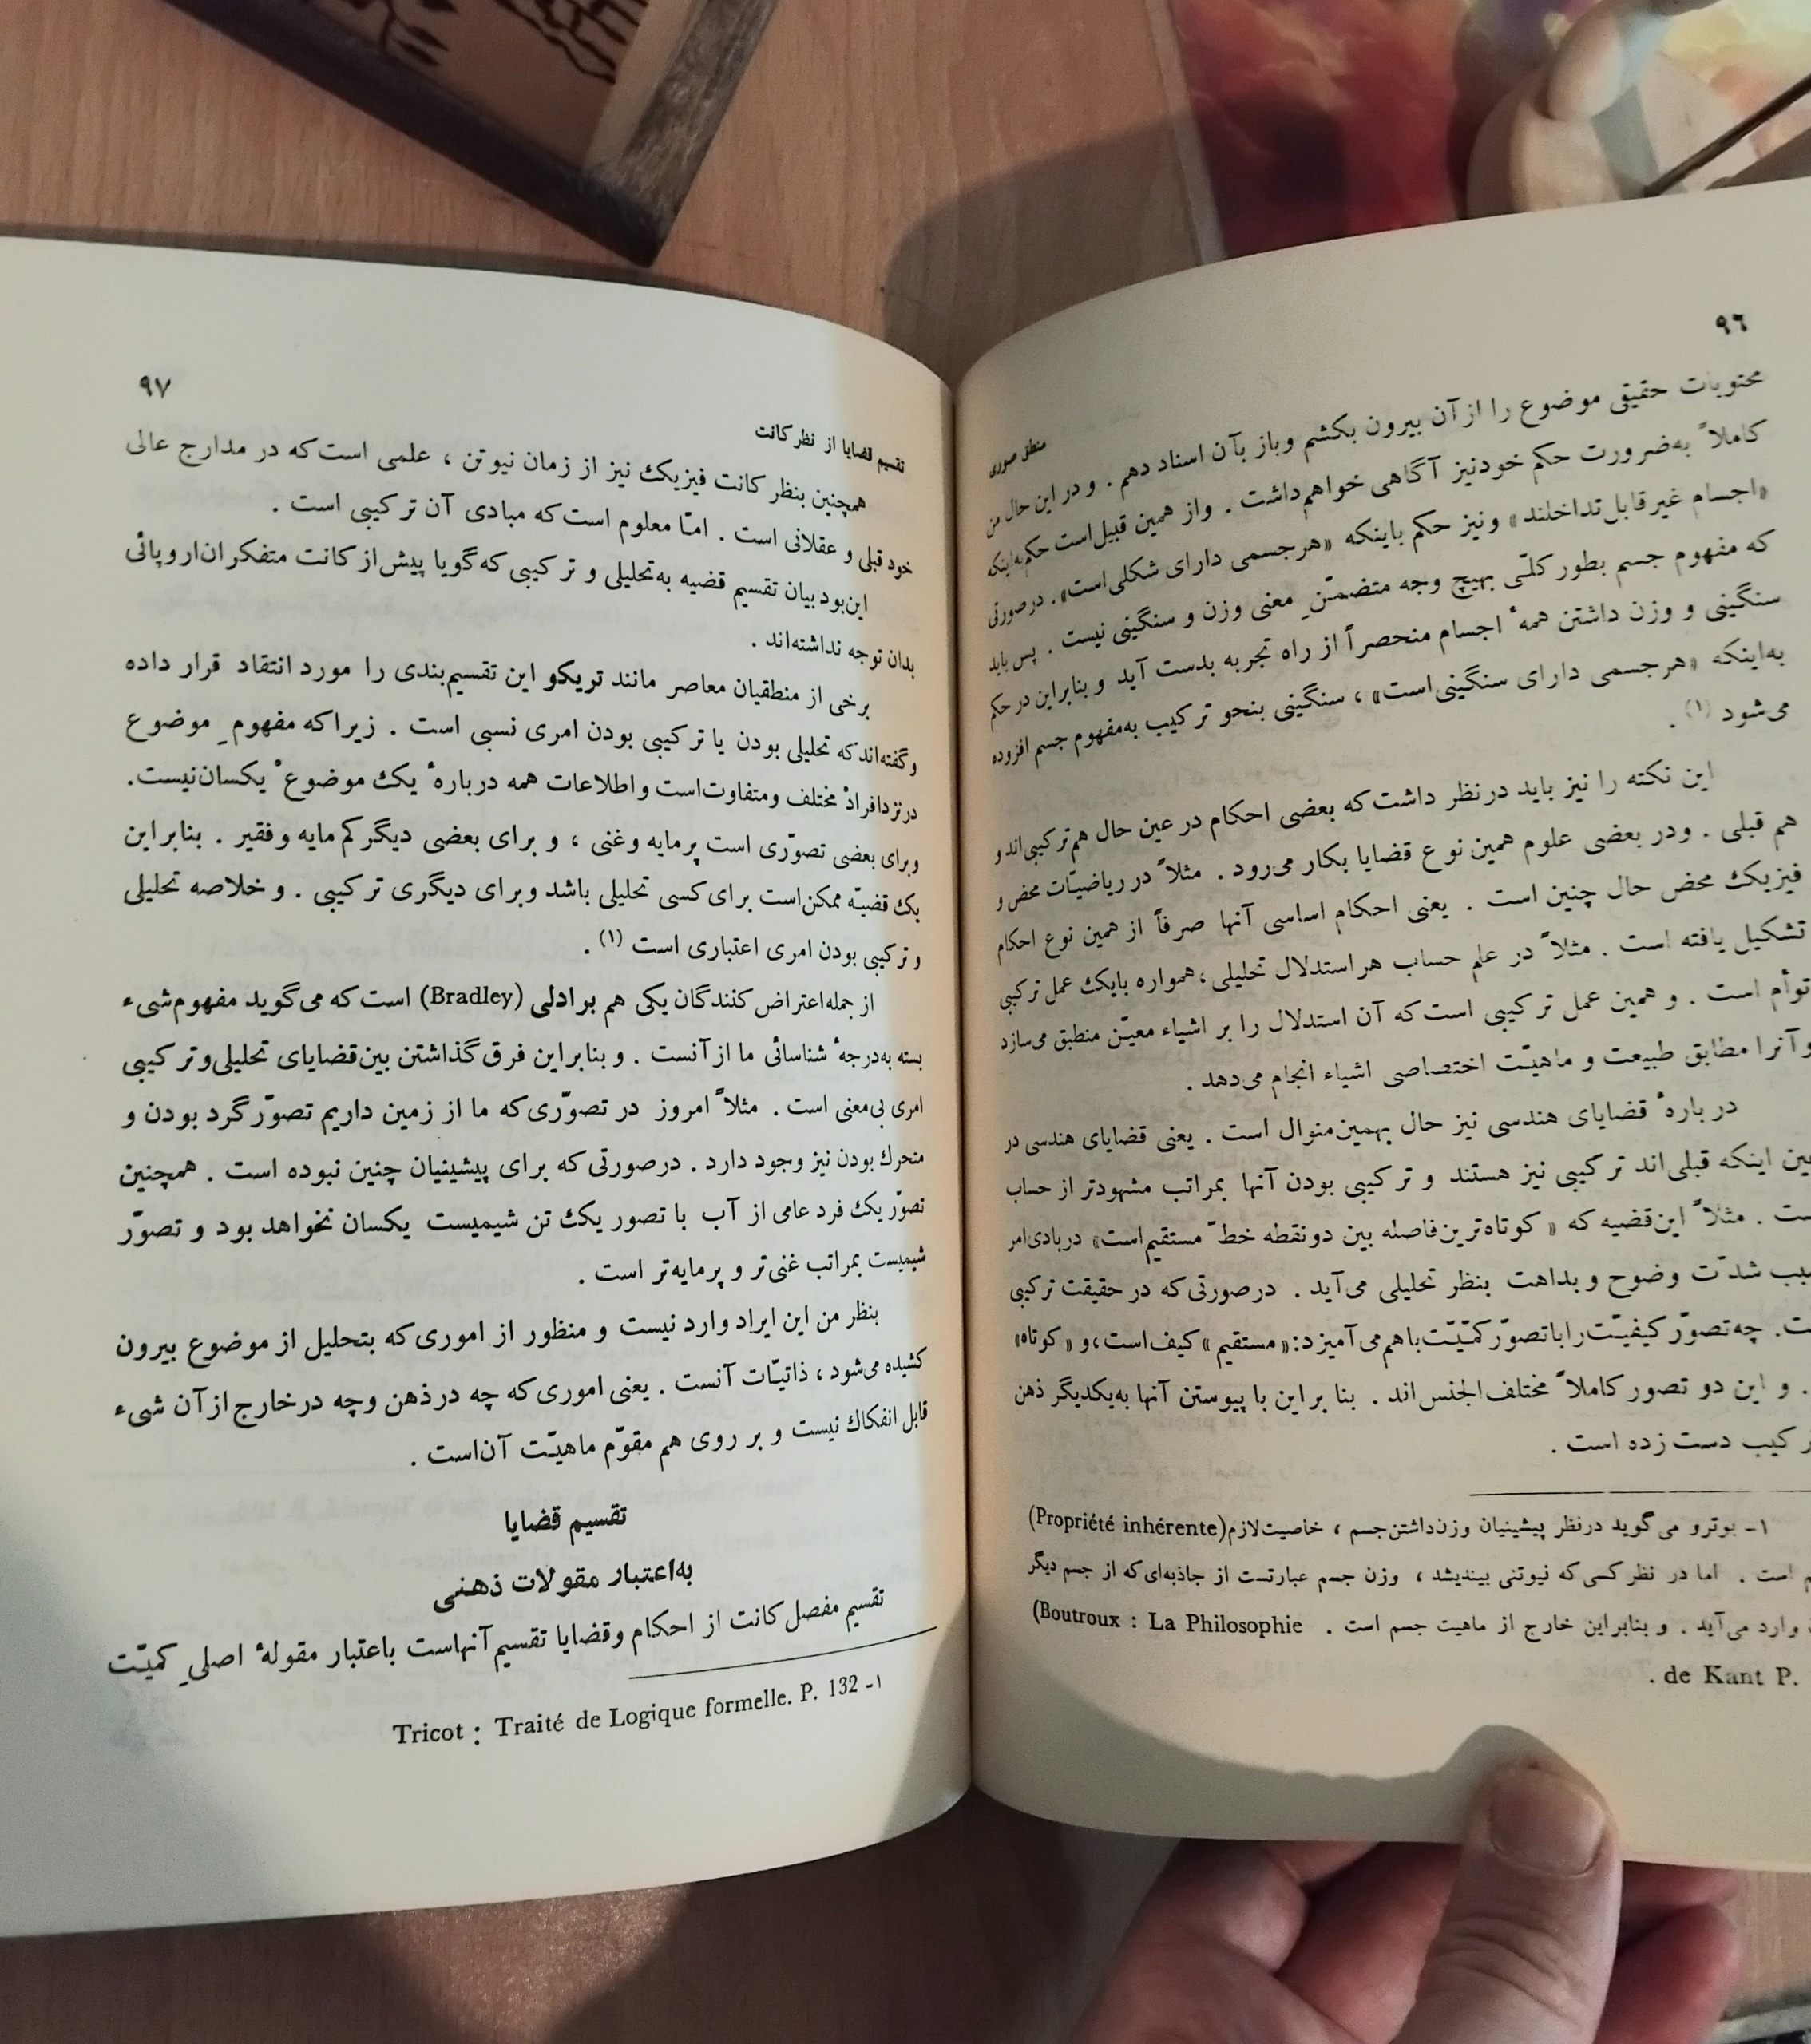 ۹۶
منطق صوری
محتویات حقیقی موضوع را از آن بیرون بکشم و باز بآن اسناد دهم . و در این حال من
کاملاً به‌ضرورت حکم خود نیز آگاهی خواهم داشت . و از همین قبیل است حکم به‌اینکه
«اجسام غیر قابل تداخلند» و نیز حکم باینکه «هر جسمی دارای شکلی است». در صورتی
که مفهوم جسم بطور کلّی بهیچ وجه متضمّنِ معنی وزن و سنگینی نیست . پس باید
سنگینی و وزن داشتن همهٔ اجسام منحصراً از راه تجربه بدست آید و بنابراین در حکم
به‌اینکه «هر جسمی دارای سنگینی است» ، سنگینی بنحو ترکیب به‌مفهوم جسم افزوده
می‌شود (۱) .
این نکته را نیز باید در نظر داشت که بعضی احکام در عین حال هم ترکیبی‌اند و
هم قبلی . و در بعضی علوم همین نوع قضایا بکار می‌رود . مثلاً در ریاضیّات محض و
فیزیک محض حال چنین است . یعنی احکام اساسی آنها صرفاً از همین نوع احکام
تشکیل یافته است . مثلاً در علم حساب هر استدلال تحلیلی ، همواره بایک عمل ترکیبی
توأم است . و همین عمل ترکیبی است که آن استدلال را بر اشیاء معیّن منطبق می‌سازد
و آنرا مطابق طبیعت و ماهیّت اختصاصی اشیاء انجام می‌دهد .
در بارهٔ قضایای هندسی نیز حال بهمین منوال است . یعنی قضایای هندسی در
اینکه قبلی‌اند ترکیبی نیز هستند و ترکیبی بودن آنها بمراتب مشهودتر از حساب
. مثلاً این قضیه که « کوتاه‌ترین فاصله بین دو نقطه خطّ مستقیم است» در بادی امر
شدّت وضوح و بداهت بنظر تحلیلی می‌آید . در صورتی که در حقیقت ترکیبی
. چه تصوّر کیفیّت را با تصوّر کمّیّت با هم می‌آمیزد: « مستقیم » کیف است، و « کوتاه»
. و این دو تصور کاملاً مختلف الجنس‌اند . بنا بر این با پیوستن آنها به‌یکدیگر ذهن
دست زده است .
۱- بوترو می گوید درنظر پیشینیان وزن‌داشتن جسم ، خاصیت لازم (Propriété inhérente)
است . اما در نظر کسی که نیوتنی بیندیشد ، وزن جسم عبارتست از جاذبه‌ای که از جسم دیگر
وارد می‌آید . و بنابراین خارج از ماهیت جسم است . (Boutroux : La Philosophie
de Kant P. .
۹۷
تقسیم قضایا از نظر کانت
همچنین بنظر کانت فیزیک نیز از زمان نیوتن ، علمی است که در مدارج عالی
خود قبلی و عقلانی است . امّا معلوم است که مبادی آن ترکیبی است .
این بود بیان تقسیم قضیه به‌تحلیلی و ترکیبی که گویا پیش از کانت متفکران اروپائی
بدان توجه نداشته‌اند .
برخی از منطقیان معاصر مانند تریکو این تقسیم‌بندی را مورد انتقاد قرار داده
و گفته‌اند که تحلیلی بودن یا ترکیبی بودن امری نسبی است . زیرا که مفهومِ موضوع
در نزد افرادْ مختلف و متفاوت است و اطلاعات همه دربارهٔ یک موضوعْ یکسان نیست.
و برای بعضی تصوّری است پرمایه و غنی ، و برای بعضی دیگر کم مایه و فقیر . بنابراین
یک قضیّه ممکن است برای کسی تحلیلی باشد و برای دیگری ترکیبی . و خلاصه تحلیلی
و ترکیبی بودن امری اعتباری است (۱) .
از جمله اعتراض کنندگان یکی هم برادلی (Bradley) است که می‌گوید مفهوم شیء
بسته به‌درجهٔ شناسائی ما از آنست . و بنابراین فرق گذاشتن بین قضایای تحلیلی و ترکیبی
امری بی‌معنی است . مثلاً امروز در تصوّری که ما از زمین داریم تصوّر گرد بودن و
متحرك بودن نیز وجود دارد . درصورتی که برای پیشینیان چنین نبوده است . همچنین
تصوّر یک فرد عامی از آب با تصور یک تن شیمیست یکسان نخواهد بود و تصوّر
شیمیست بمراتب غنی‌تر و پرمایه‌تر است .
بنظر من این ایراد وارد نیست و منظور از اموری که بتحلیل از موضوع بیرون
کشیده می‌شود ، ذاتیّات آنست . یعنی اموری که چه در ذهن و چه در خارج از آن شیء
قابل انفكاك نیست و بر روی هم مقوّم ماهیّت آن است .
تقسیم قضایا
به‌اعتبار مقولات ذهنی
تقسیم مفصل کانت از احکام و قضایا تقسیم آنهاست باعتبار مقولهٔ اصلیِ کمیّت
۱- Tricot : Traité de Logique formelle. P. 132